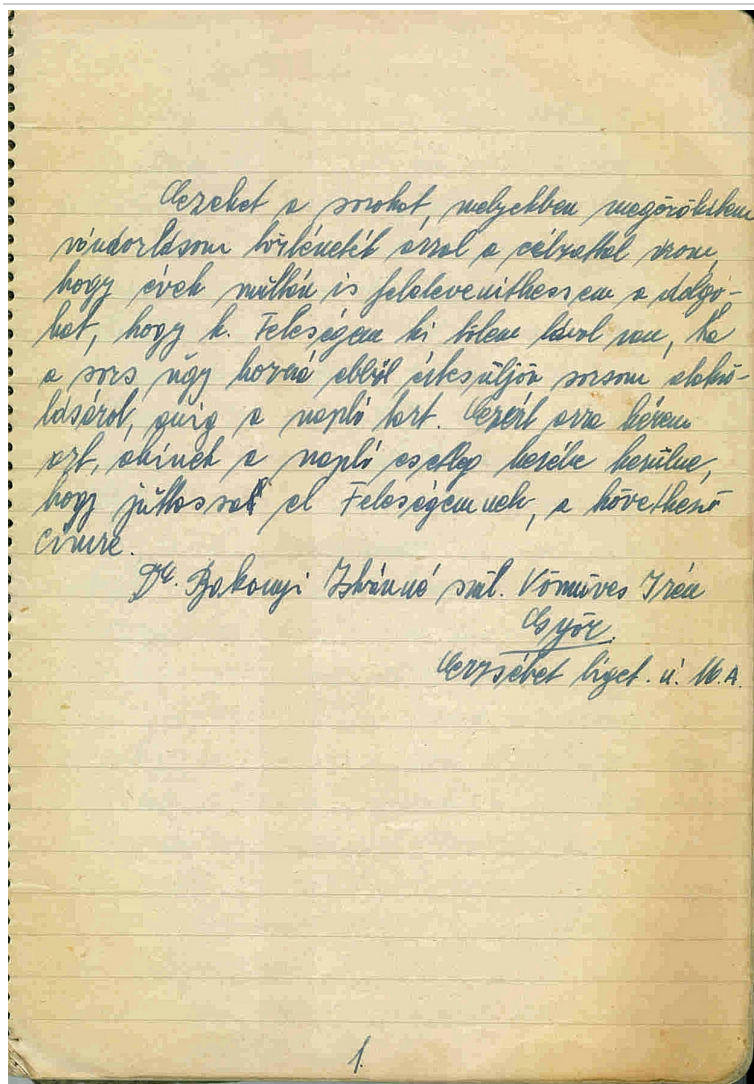 Ezeket a sorokat, melyekben megörökitem
vándorlásom történetét azzal a célzattal irom,
hogy évek multán is felelevenithessem a dolgo-
kat, hogy k. Feleségem ki tőlem távol van, ha
a sors úgy hozná ebből értesüljön sorsom alaku-
lásáról, amig a napló tart. Ezért arra kérem
azt, akinek a napló esetleg kezébe kerülne,
hogy juttassa el Feleségemnek, a következő
cimre.
Dr. Bakonyi Istvánné szül. Kőműves Irén
Győr.
Erzsébet liget. ú. 16.A.
1.